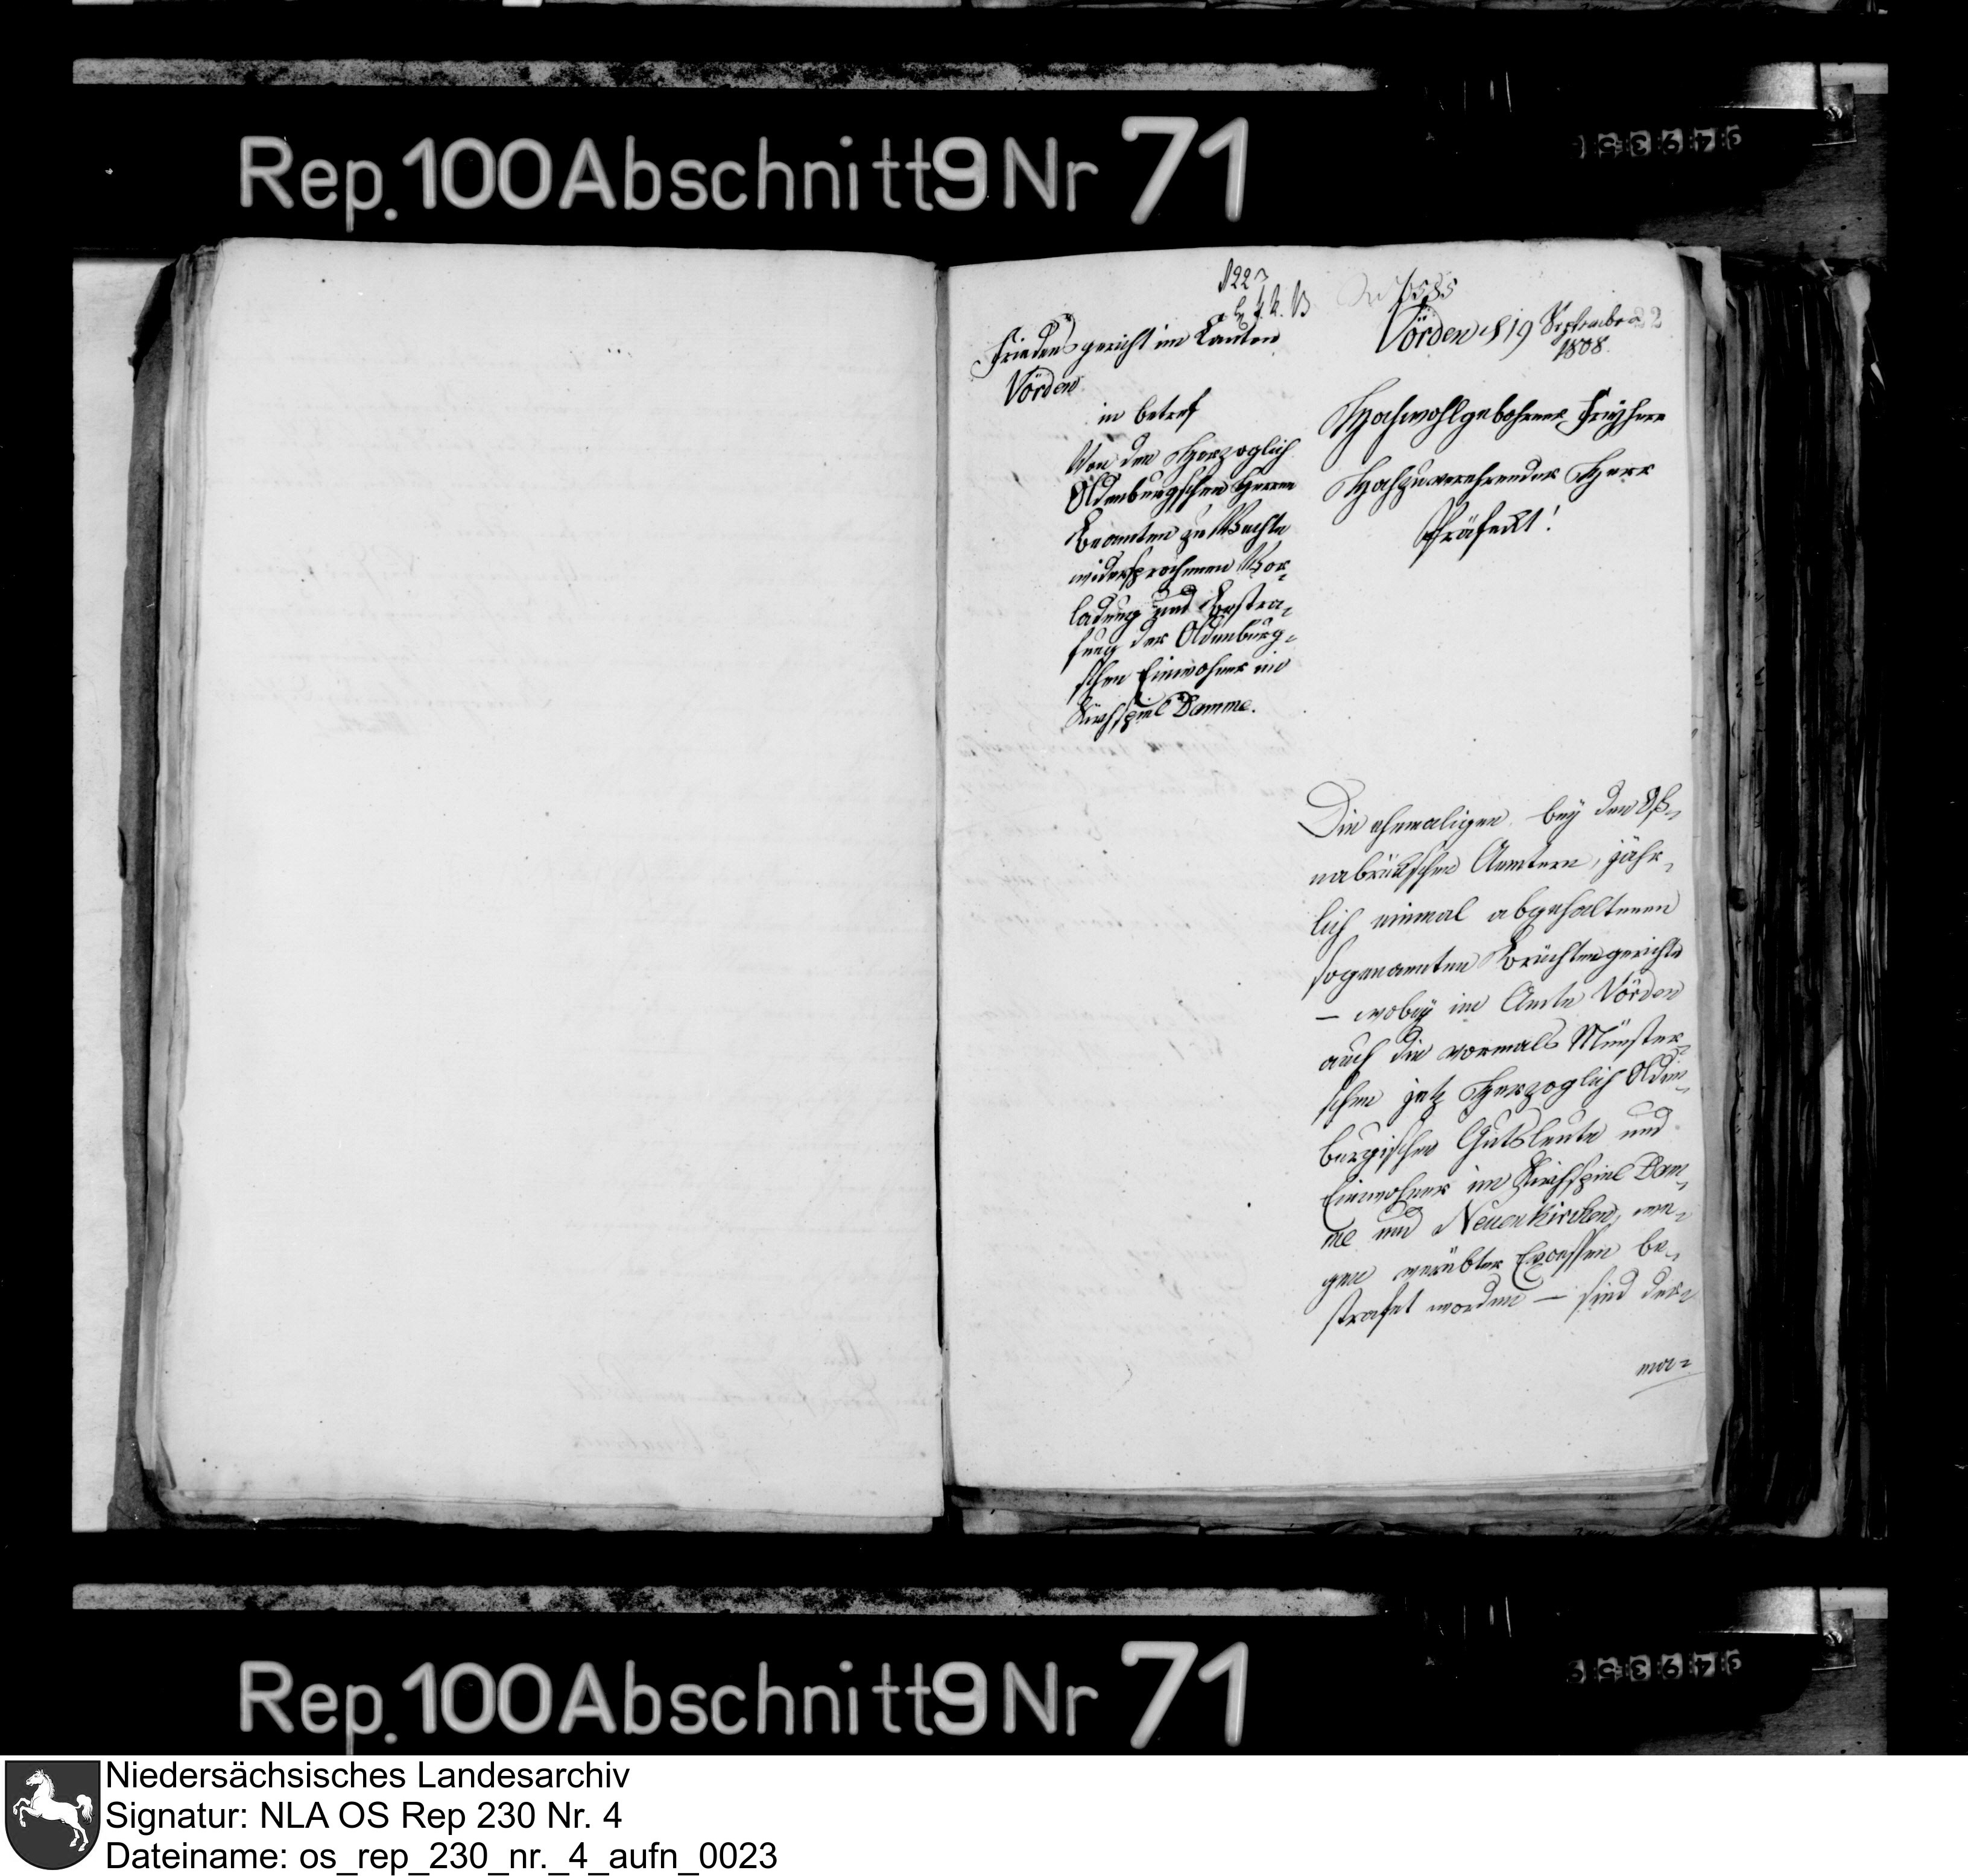 Rep. 100 Abschnitt 9 Nr 71
1223
Friedensgericht im Canton
Vörden
in betref
Von den Herzoglich
Oldenburgschen Herren
Beamten zu Vechte
widersprochenen Vor-
ladung und Bestra-
fung der Oldenburg-
schen Einwohner im
Kirchspiel Damme.
22
Vörden d 19 September
1808.
Hochwohlgebohrner Freyherr
Hochzuverehrender Herr
Präfect!
Die ehemaligen bey den Oß-
nabrückschen Aemtern, jähr-
lich einmal abgehaltenen
sogenannten Brüchtengerichte
– wobey im Amte Vörden
auch die vormals Münster-
schen jetz Herzoglich Olden-
burgischen Gutsleute und
Einwohner im Kirchspiel Dam-
me und Neuenkirchen, we-
gen verübter Excessen be-
strafet worden – sind der-
ma-
Rep. 100 Abschnitt 9 Nr 71
Niedersächsisches Landesarchiv
Signatur: NLA OS Rep 230 Nr. 4
Dateiname: os_rep_230_nr._4_aufn_0023